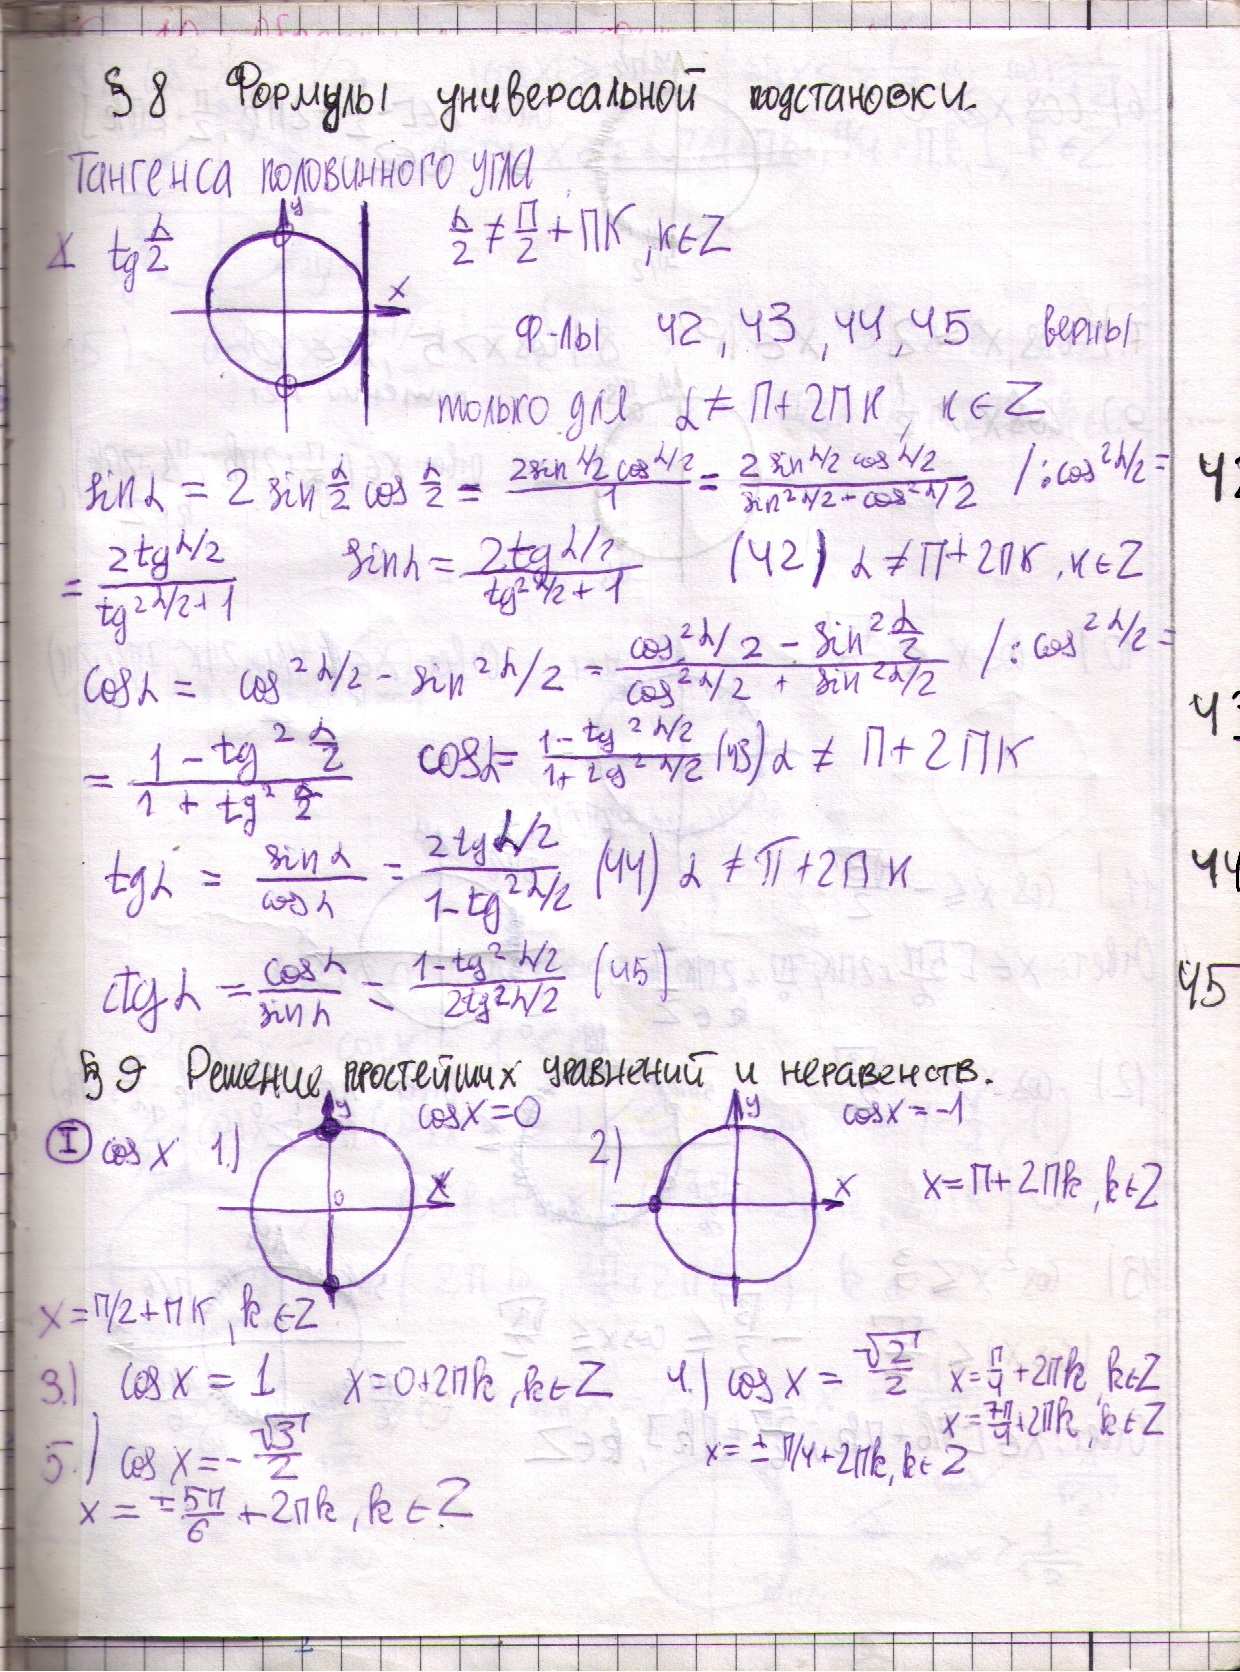 § 8 Формулы универсальной подстановки.
Тангенса половинного угла
tg α/2 y x α/2 ≠ П/2 + ПК, к∈Z
Ф-лы 42, 43, 44, 45 верны
только для α ≠ П + 2ПК, к ∈ Z
sin α = 2 sin α/2 cos α/2 = (2sin α/2 cos α/2)/1 = (2 sin α/2 cos α/2)/(sin² α/2 + cos² α/2) /: cos² α/2 = 42
= (2tg α/2)/(tg² α/2 + 1) sin α = (2tg α/2)/(tg² α/2 + 1) (42) α ≠ П + 2ПК, к∈Z
cos α = cos² α/2 - sin² α/2 = (cos² α/2 - sin² α/2)/(cos² α/2 + sin² α/2) /: cos² α/2 =
43
= (1 - tg² α/2)/(1 + tg² α/2) cos α = (1 - tg² α/2)/(1 + tg² α/2) (43) α ≠ П + 2ПК
tg α = sin α/cos α = (2tg α/2)/(1 - tg² α/2) (44) α ≠ П + 2ПК 44
ctg α = cos α/sin α = (1 - tg² α/2)/(2tg² α/2) (45) 45
§ 9 Решение простейших уравнений и неравенств.
I cos x 1.) y x 0 cos x = 0 2) y x cos x = -1
x = П + 2Пk, k∈Z
x = П/2 + ПК, k ∈ Z
3.) cos x = 1 x = 0 + 2Пk, k ∈ Z 4.) cos x = √2/2 x = П/4 + 2Пk, k∈Z
x = 7П/4 + 2Пk, k∈Z
5.) cos x = - √3/2 x = ± П/4 + 2Пk, k ∈ Z
x = ± 5П/6 + 2Пk, k ∈ Z